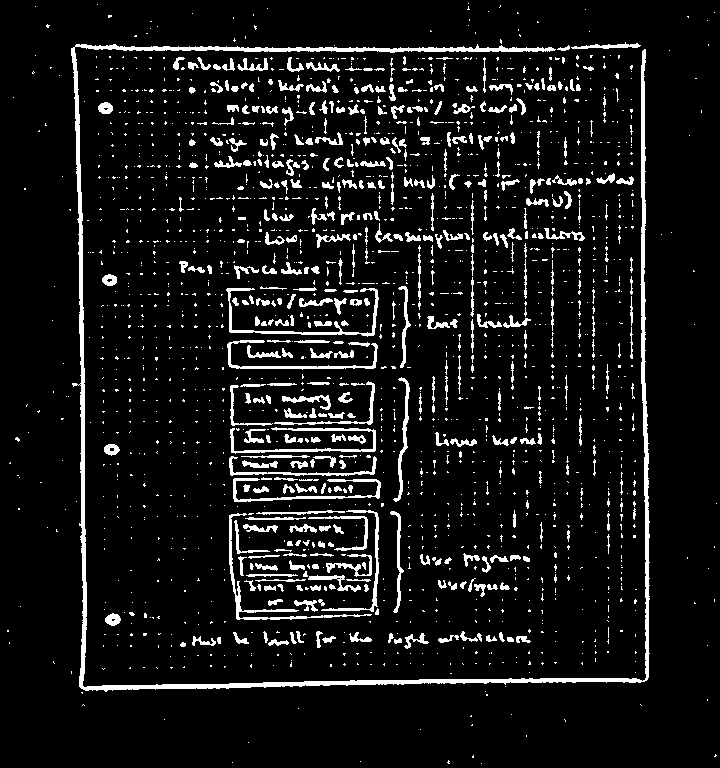 Embedded Linux
• Store "kernel's image" in a non-volatile
memory (flash, Eprom / SD-Card)
• size of kernel image = footprint
• advantages (Linux)
- work without MMU (
MMU)
- low footprint
- Low power consumption applications
Boot procedure
extract / Decompress
kernel image
Lunch kernel
Boot loader
Init memory &
Hardware
Init
Mount root FS
Run /sbin/init
Linux kernel
Start network
service
login prompt
Start
or apps
User programs
User/space.
• Must be built for the right architecture